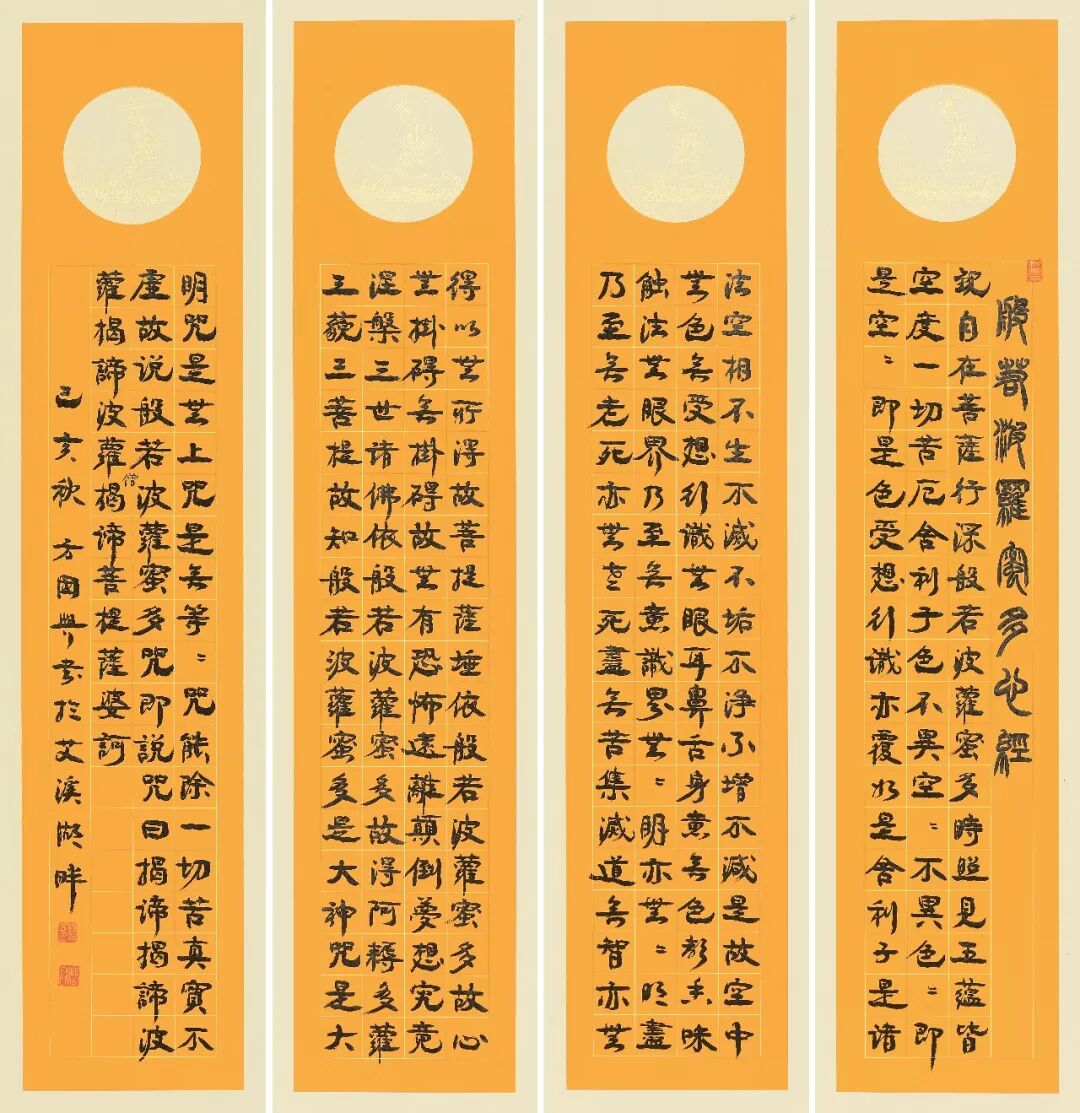 般若波羅蜜多心經
觀自在菩薩行深般若波蘿蜜多時照見五蘊皆
空度一切苦厄舍利子色不異空〻不異色〻即
是空〻即是色受想行識亦覆如是舍利子是諸
法空相不生不滅不垢不淨不增不減是故空中
無色無受想行識無眼耳鼻舌身意無色聲香味
触法無眼界乃至無意識界無〻明亦無〻明盡
乃至無老死亦無老死盡無苦集滅道無智亦無
得以無所得故菩提薩埵依般若波蘿蜜多故心
無掛碍無掛碍故無有恐怖遠離顛倒夢想究竟
涅槃三世諸佛依般若波蘿蜜多故得阿耨多蘿
三藐三菩提故知般若波蘿蜜多是大神咒是大
明咒是無上咒是無等〻咒能除一切苦真實不
虛故說般若波蘿蜜多咒即說咒曰揭諦揭諦波
蘿揭諦波蘿僧揭諦菩提薩婆訶
己亥秋 方國興書於艾溪湖畔